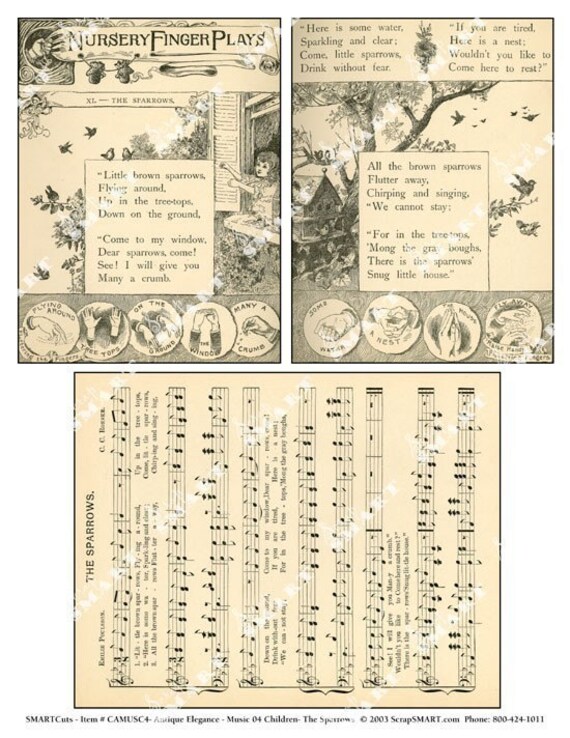 NURSERY FINGER PLAYS
XI — THE SPARROWS.
"Little brown sparrows,
Flying around,
Up in the tree-tops,
Down on the ground,
"Come to my window,
Dear sparrows, come!
See! I will give you
Many a crumb.
FLYING AROUND
TREE TOPS
ON THE GROUND
THE WINDOW
MANY A CRUMB
"Here is some water,
Sparkling and clear;
Come, little sparrows,
Drink without fear.
"If you are tired,
Here is a nest;
Wouldn't you like to
Come here to rest?"
All the brown sparrows
Flutter away,
Chirping and singing,
"We cannot stay;
"For in the tree-tops,
'Mong the gray boughs,
There is the sparrows'
Snug little house."
SOME WATER
A NEST
FLY AWAY
THE SPARROWS.
EMILIE POULSSON.
1. "Lit - tle brown spar - rows, Fly - ing a - round, Up in the tree - tops,
2. "Here is some wa - ter, Spark-ling and clear; Come, lit - tle spar - rows,
3. All the brown spar - rows Flut - ter a - way, Chirp-ing and sing - ing,
Down on the ground, Come to my window, Dear spar - rows, come!
Drink with-out fear. If you are tired, Here is a nest;
"We can - not stay; For in the tree - tops, 'Mong the gray boughs,
See! I will give you Man-y a crumb."
Wouldn't you like to Come here and rest?"
There is the spar - rows' Snug lit-tle house."
SMARTCuts - Item # CAMUSC4- Antique Elegance - Music 04 Children- The Sparrows © 2003 ScrapSMART.com Phone: 800-424-1011